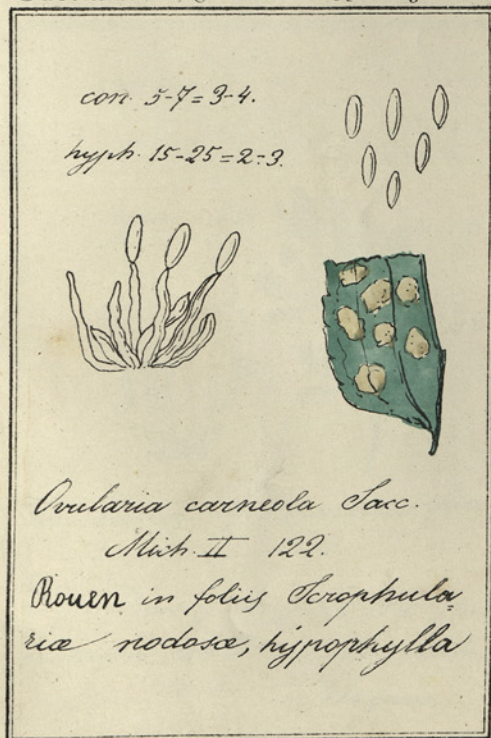 con. 5-7=3-4.
hyph. 15-25=2-3.
Ovularia carneola Sacc.
Mich. II 122.
Rouen in foliis Scrophula-
riæ nodosæ, hypophylla